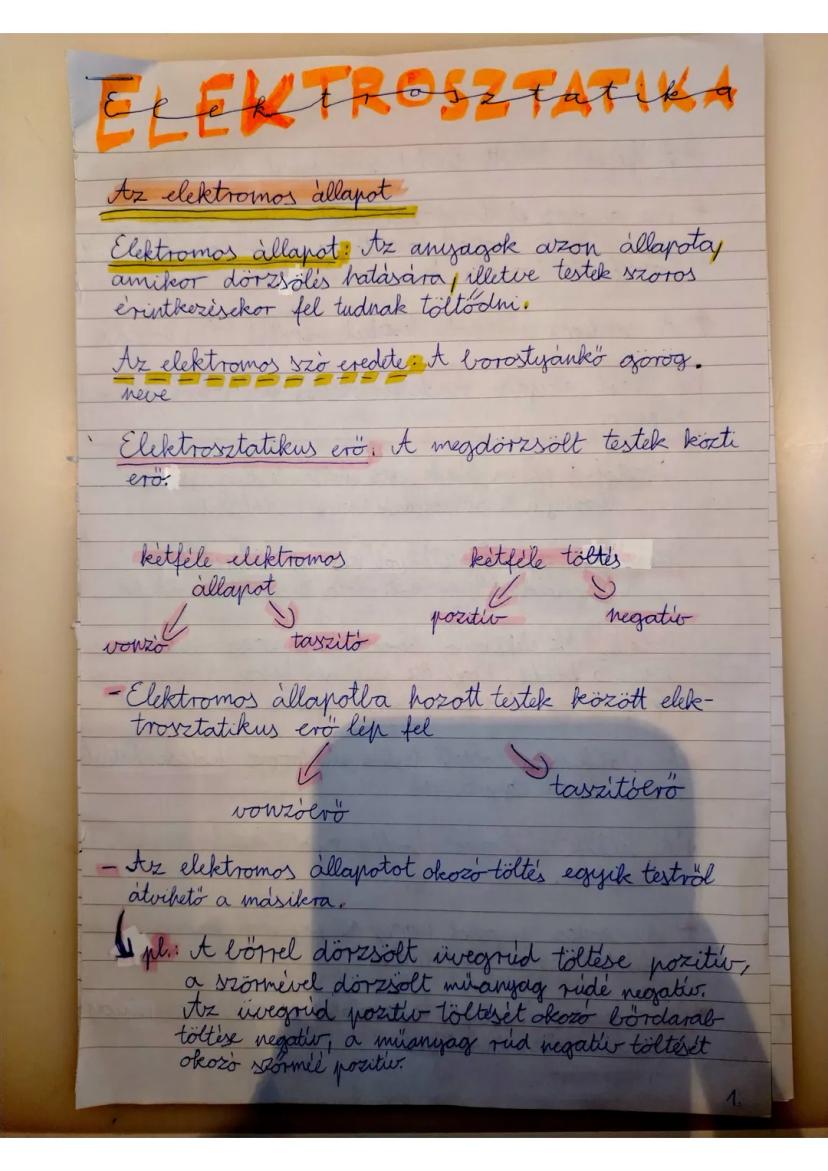 ELEKTROSZTATIKA
Elektrosztatika
Az elektromos állapot
Elektromos állapot: Az anyagok azon állapota,
amikor dörzsölés hatására, illetve testek szoros
érintkezésekor fel tudnak töltődni.
Az elektromos szó eredete: A borostyánkő görög.
neve
Elektrosztatikus erő: A megdörzsölt testek közti
erő.
kétféle elektromos
állapot
vonzó
taszító
kétféle töltés
pozitív
negatív
- Elektromos állapotba hozott testek között elek-
trosztatikus erő lép fel
vonzóerő
taszítóerő
- Az elektromos állapotot okozó töltés egyik testről
átvihető a másikra.
pl.: A bőrrel dörzsölt üvegrúd töltése pozitív,
a szőrmével dörzsölt műanyag rúdé negatív.
Az üvegrúd pozitív töltését okozó bőrdarab
töltése negatív, a műanyag rúd negatív töltését
okozó szőrméé pozitív.
1.